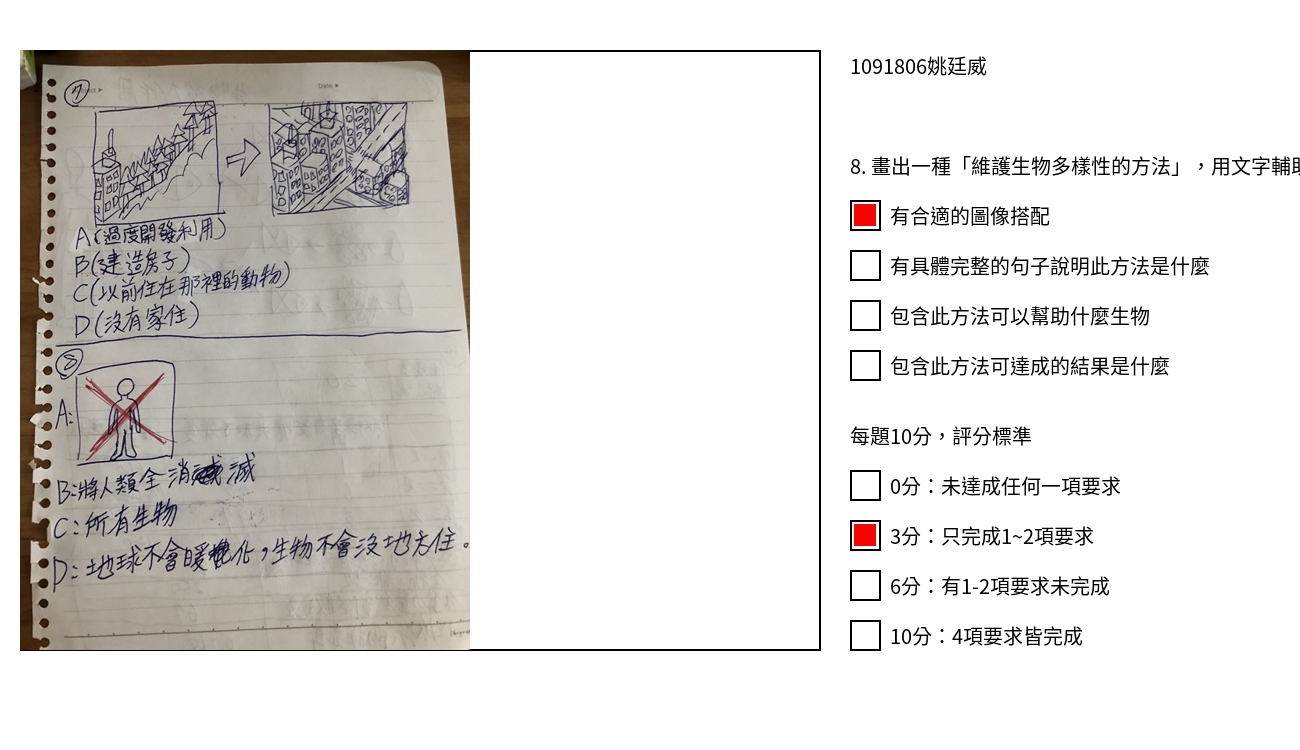 ⑦
Date
A(過度開發利用)
B(建造房子)
C(以前住在那裡的動物)
D(沒有家住)
⑧
A:
B:將人類全消滅
C:所有生物
D:地球不會暖化,生物不會沒地方住。
1091806姚廷威
8. 畫出一種「維護生物多樣性的方法」,用文字輔助
有合適的圖像搭配
有具體完整的句子說明此方法是什麼
包含此方法可以幫助什麼生物
包含此方法可達成的結果是什麼
每題10分,評分標準
0分:未達成任何一項要求
3分:只完成1~2項要求
6分:有1-2項要求未完成
10分:4項要求皆完成